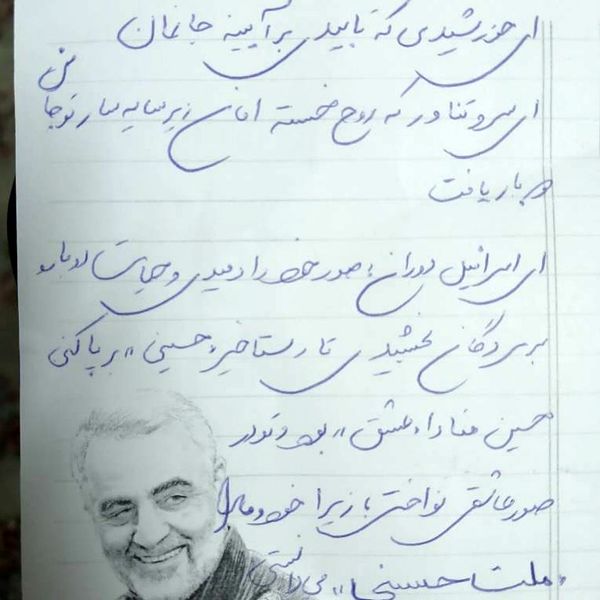 ای خورشیدی که تابیدی بر آیینه جانمان
ای سرو تناور که روح خسته امان زیر سایه سار تو جانی
دوباره یافت
ای اسرافیل دوران، صور خود را دمیدی و حیات دوباره
بر مردگان بخشیدی تا رستاخیز "حسینی" بر پا کنی
حسین منادا، عشق" بود و تو در
صور عاشقی نواختی، زیرا خود و ما را
"ملت حسینی" می دانستی